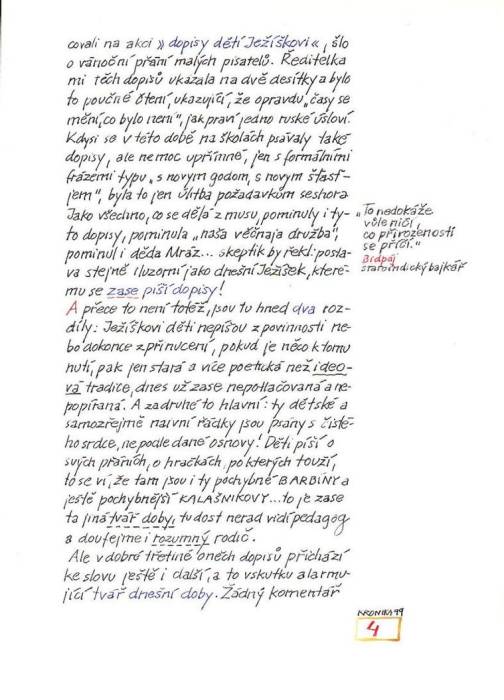 covali na akci » dopisy dětí Ježíškovi «, šlo
o vánoční přání malých pisatelů. Ředitelka
mi těch dopisů ukázala na dvě desítky a bylo
to poučné čtení, ukazující, že opravdu „časy se
mění, co bylo není", jak praví jedno ruské úsloví.
Kdysi se v této době na školách psávaly také
dopisy, ale nemoc upřímné, jen s formálními
frázemi typu „s novym godom, s novym šťast-
jem", byla to jen úlitba požadavkům seshora.
Jako všechno, co se dělá z musu, pominuly i ty-
to dopisy, pominula „naša věčnaja družba",
pominul i děda Mráz... skeptik by řekl: posta-
va stejně iluzorní jako dnešní Ježíšek, které-
mu se zase píší dopisy!
A přece to není totéž, jsou tu hned dva roz-
díly: Ježíškovi děti nepíšou z povinnosti ne-
bo dokonce z přinucení, pokud je něco k tomu
nutí, pak jen stará a více poetická než ideo-
vá tradice, dnes už zase nepotlačovaná a ne-
popíraná. A za druhé to hlavní: ty dětské a
samozřejmě naivní řádky jsou psány s čisté-
ho srdce, ne podle dané osnovy! Děti píší o
svých přáních, o hračkách, po kterých touží,
to se ví, že tam jsou i ty pochybné BARBÍNY a
ještě pochybnější KALAŠNIKOVY... to je zase
ta jiná tvář doby, tu dost nerad vidí pedagog
a doufejme i rozumný rodič.
Ale v dobré třetině oněch dopisů přichází
ke slovu ještě i další, a to vskutku alarmu-
jící tvář dnešní doby. Žádný komentář
„To nedokáže
vůle ničí,
co přirozenosti
se příčí."
Bidpáj
staroindický bajkář
KRONIKA 99
4